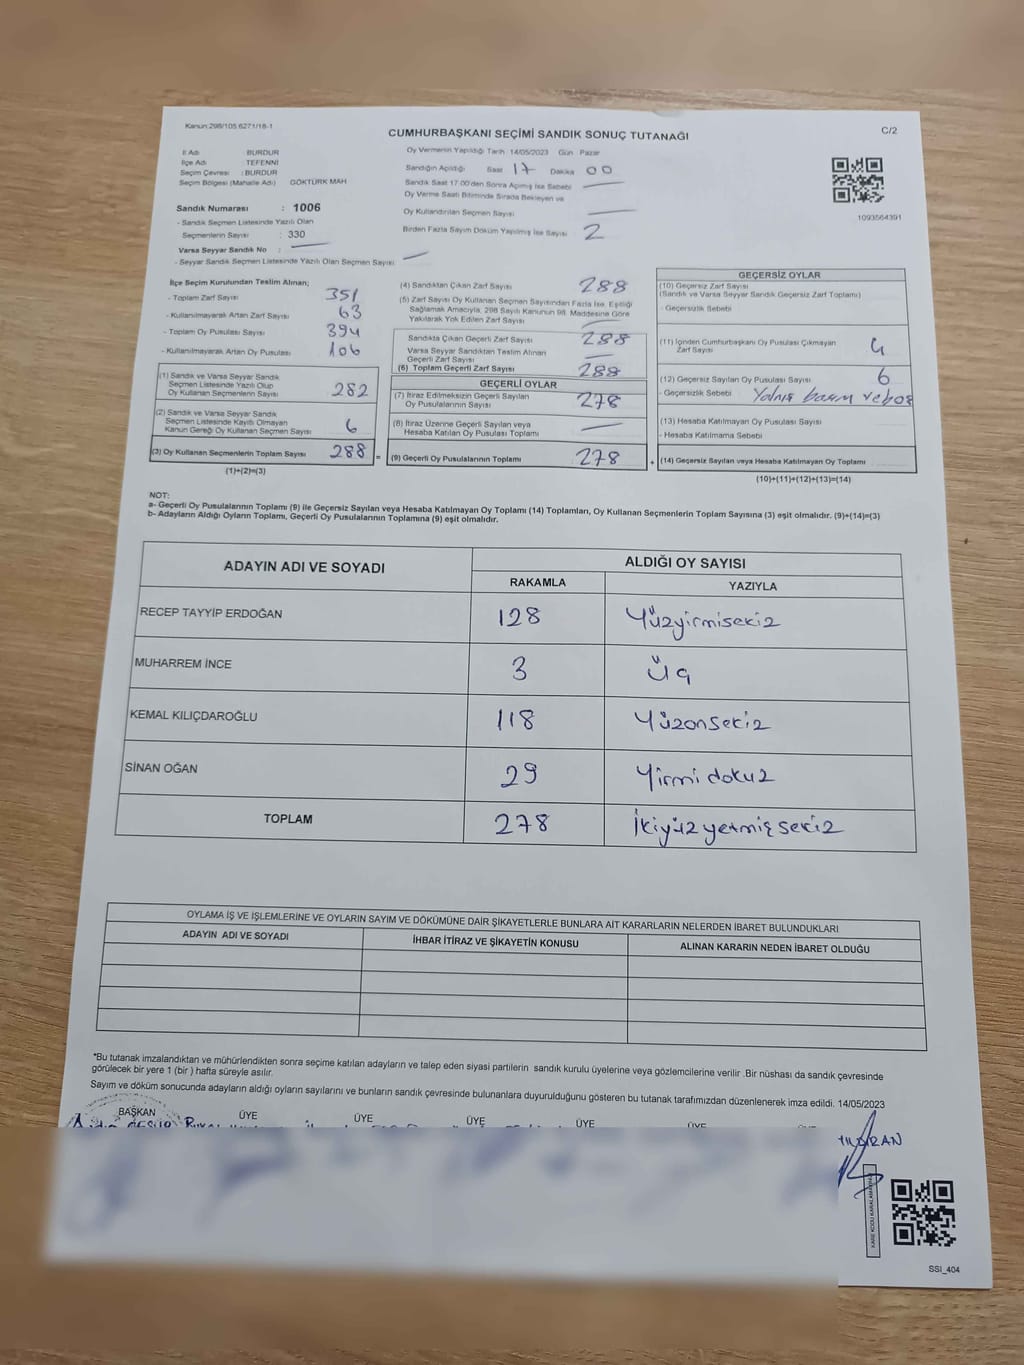 Kanun:298/105 6271/18-1
CUMHURBAŞKANI SEÇİMİ SANDIK SONUÇ TUTANAĞI
C/2
İl Adı : BURDUR
İlçe Adı : TEFENNİ
Seçim Çevresi : BURDUR
Seçim Bölgesi (Mahalle Adı) GÖKTÜRK MAH
Sandık Numarası : 1006
- Sandık Seçmen Listesinde Yazılı Olan
Seçmenlerin Sayısı : 330
Varsa Seyyar Sandık No :
- Seyyar Sandık Seçmen Listesinde Yazılı Olan Seçmen Sayısı
Oy Vermenin Yapıldığı Tarih 14/05/2023 Gün Pazar
Sandığın Açıldığı Saat 17 Dakika 00
Sandık Saat 17.00'den Sonra Açılmış İse Sebebi
Oy Verme Saati Bitiminde Sırada Bekleyen ve
Oy Kullandırılan Seçmen Sayısı
Birden Fazla Sayım Döküm Yapılmış İse Sayısı 2
1093564391
İlçe Seçim Kurulundan Teslim Alınan;
- Toplam Zarf Sayısı 351
- Kullanılmayarak Artan Zarf Sayısı 63
- Toplam Oy Pusulası Sayısı 394
- Kullanılmayarak Artan Oy Pusulası 106
(1) Sandık ve Varsa Seyyar Sandık
Seçmen Listesinde Yazılı Olup
Oy Kullanan Seçmen Sayısı 282
(2) Sandık ve Varsa Seyyar Sandık
Seçmen Listesinde Kayıtlı Olmayan
Kanun Gereği Oy Kullanan Seçmen Sayısı 6
(3) Oy Kullanan Seçmenlerin Toplam Sayısı 288 =
(1)+(2)=(3)
(4) Sandıktan Çıkan Zarf Sayısı 288
(5) Zarf Sayısı Oy Kullanan Seçmen Sayısından Fazla İse, Eşitliği
Sağlamak Amacıyla, 298 Sayılı Kanunun 98. Maddesine Göre
Yakılarak Yok Edilen Zarf Sayısı
Sandıkta Çıkan Geçerli Zarf Sayısı 288
Varsa Seyyar Sandıktan Teslim Alınan
Geçerli Zarf Sayısı
(6) Toplam Geçerli Zarf Sayısı 288
GEÇERLİ OYLAR
(7) İtiraz Edilmeksizin Geçerli Sayılan
Oy Pusulalarının Sayısı 278
(8) İtiraz Üzerine Geçerli Sayılan veya
Hesaba Katılan Oy Pusulası Toplamı
(9) Geçerli Oy Pusulalarının Toplamı 278 +
GEÇERSİZ OYLAR
(10) Geçersiz Zarf Sayısı
(Sandık ve Varsa Seyyar Sandık Geçersiz Zarf Toplamı)
- Geçersizlik Sebebi
(11) İçinden Cumhurbaşkanı Oy Pusulası Çıkmayan
Zarf Sayısı 4
(12) Geçersiz Sayılan Oy Pusulası Sayısı 6
- Geçersizlik Sebebi Yalnış basım ve boş
(13) Hesaba Katılmayan Oy Pusulası Sayısı
- Hesaba Katılmama Sebebi
(14) Geçersiz Sayılan veya Hesaba Katılmayan Oy Toplamı
(10)+(11)+(12)+(13)=(14)
NOT:
a- Geçerli Oy Pusulalarının Toplamı (9) ile Geçersiz Sayılan veya Hesaba Katılmayan Oy Toplamı (14) Toplamları, Oy Kullanan Seçmenlerin Toplam Sayısına (3) eşit olmalıdır. (9)+(14)=(3)
b- Adayların Aldığı Oyların Toplamı, Geçerli Oy Pusulalarının Toplamına (9) eşit olmalıdır.
ADAYIN ADI VE SOYADI
ALDIĞI OY SAYISI
RAKAMLA YAZIYLA
RECEP TAYYİP ERDOĞAN 128 Yüzyirmisekiz
MUHARREM İNCE 3 Üç
KEMAL KILIÇDAROĞLU 118 Yüzonsekiz
SİNAN OĞAN 29 Yirmi dokuz
TOPLAM 278 İkiyüz yetmiş sekiz
OYLAMA İŞ VE İŞLEMLERİNE VE OYLARIN SAYIM VE DÖKÜMÜNE DAİR ŞİKAYETLERLE BUNLARA AİT KARARLARIN NELERDEN İBARET BULUNDUKLARI
ADAYIN ADI VE SOYADI İHBAR İTİRAZ VE ŞİKAYETİN KONUSU ALINAN KARARIN NEDEN İBARET OLDUĞU
*Bu tutanak imzalandıktan ve mühürlendikten sonra seçime katılan adayların ve talep eden siyasi partilerin sandık kurulu üyelerine veya gözlemcilerine verilir .Bir nüshası da sandık çevresinde
görülecek bir yere 1 (bir ) hafta süreyle asılır.
Sayım ve döküm sonucunda adayların aldığı oyların sayılarını ve bunların sandık çevresinde bulunanlara duyurulduğunu gösteren bu tutanak tarafımızdan düzenlenerek imza edildi. 14/05/2023
BAŞKAN ÜYE ÜYE ÜYE ÜYE ÜYE
KARE KODU KARALAMAYINIZ
SSI_404